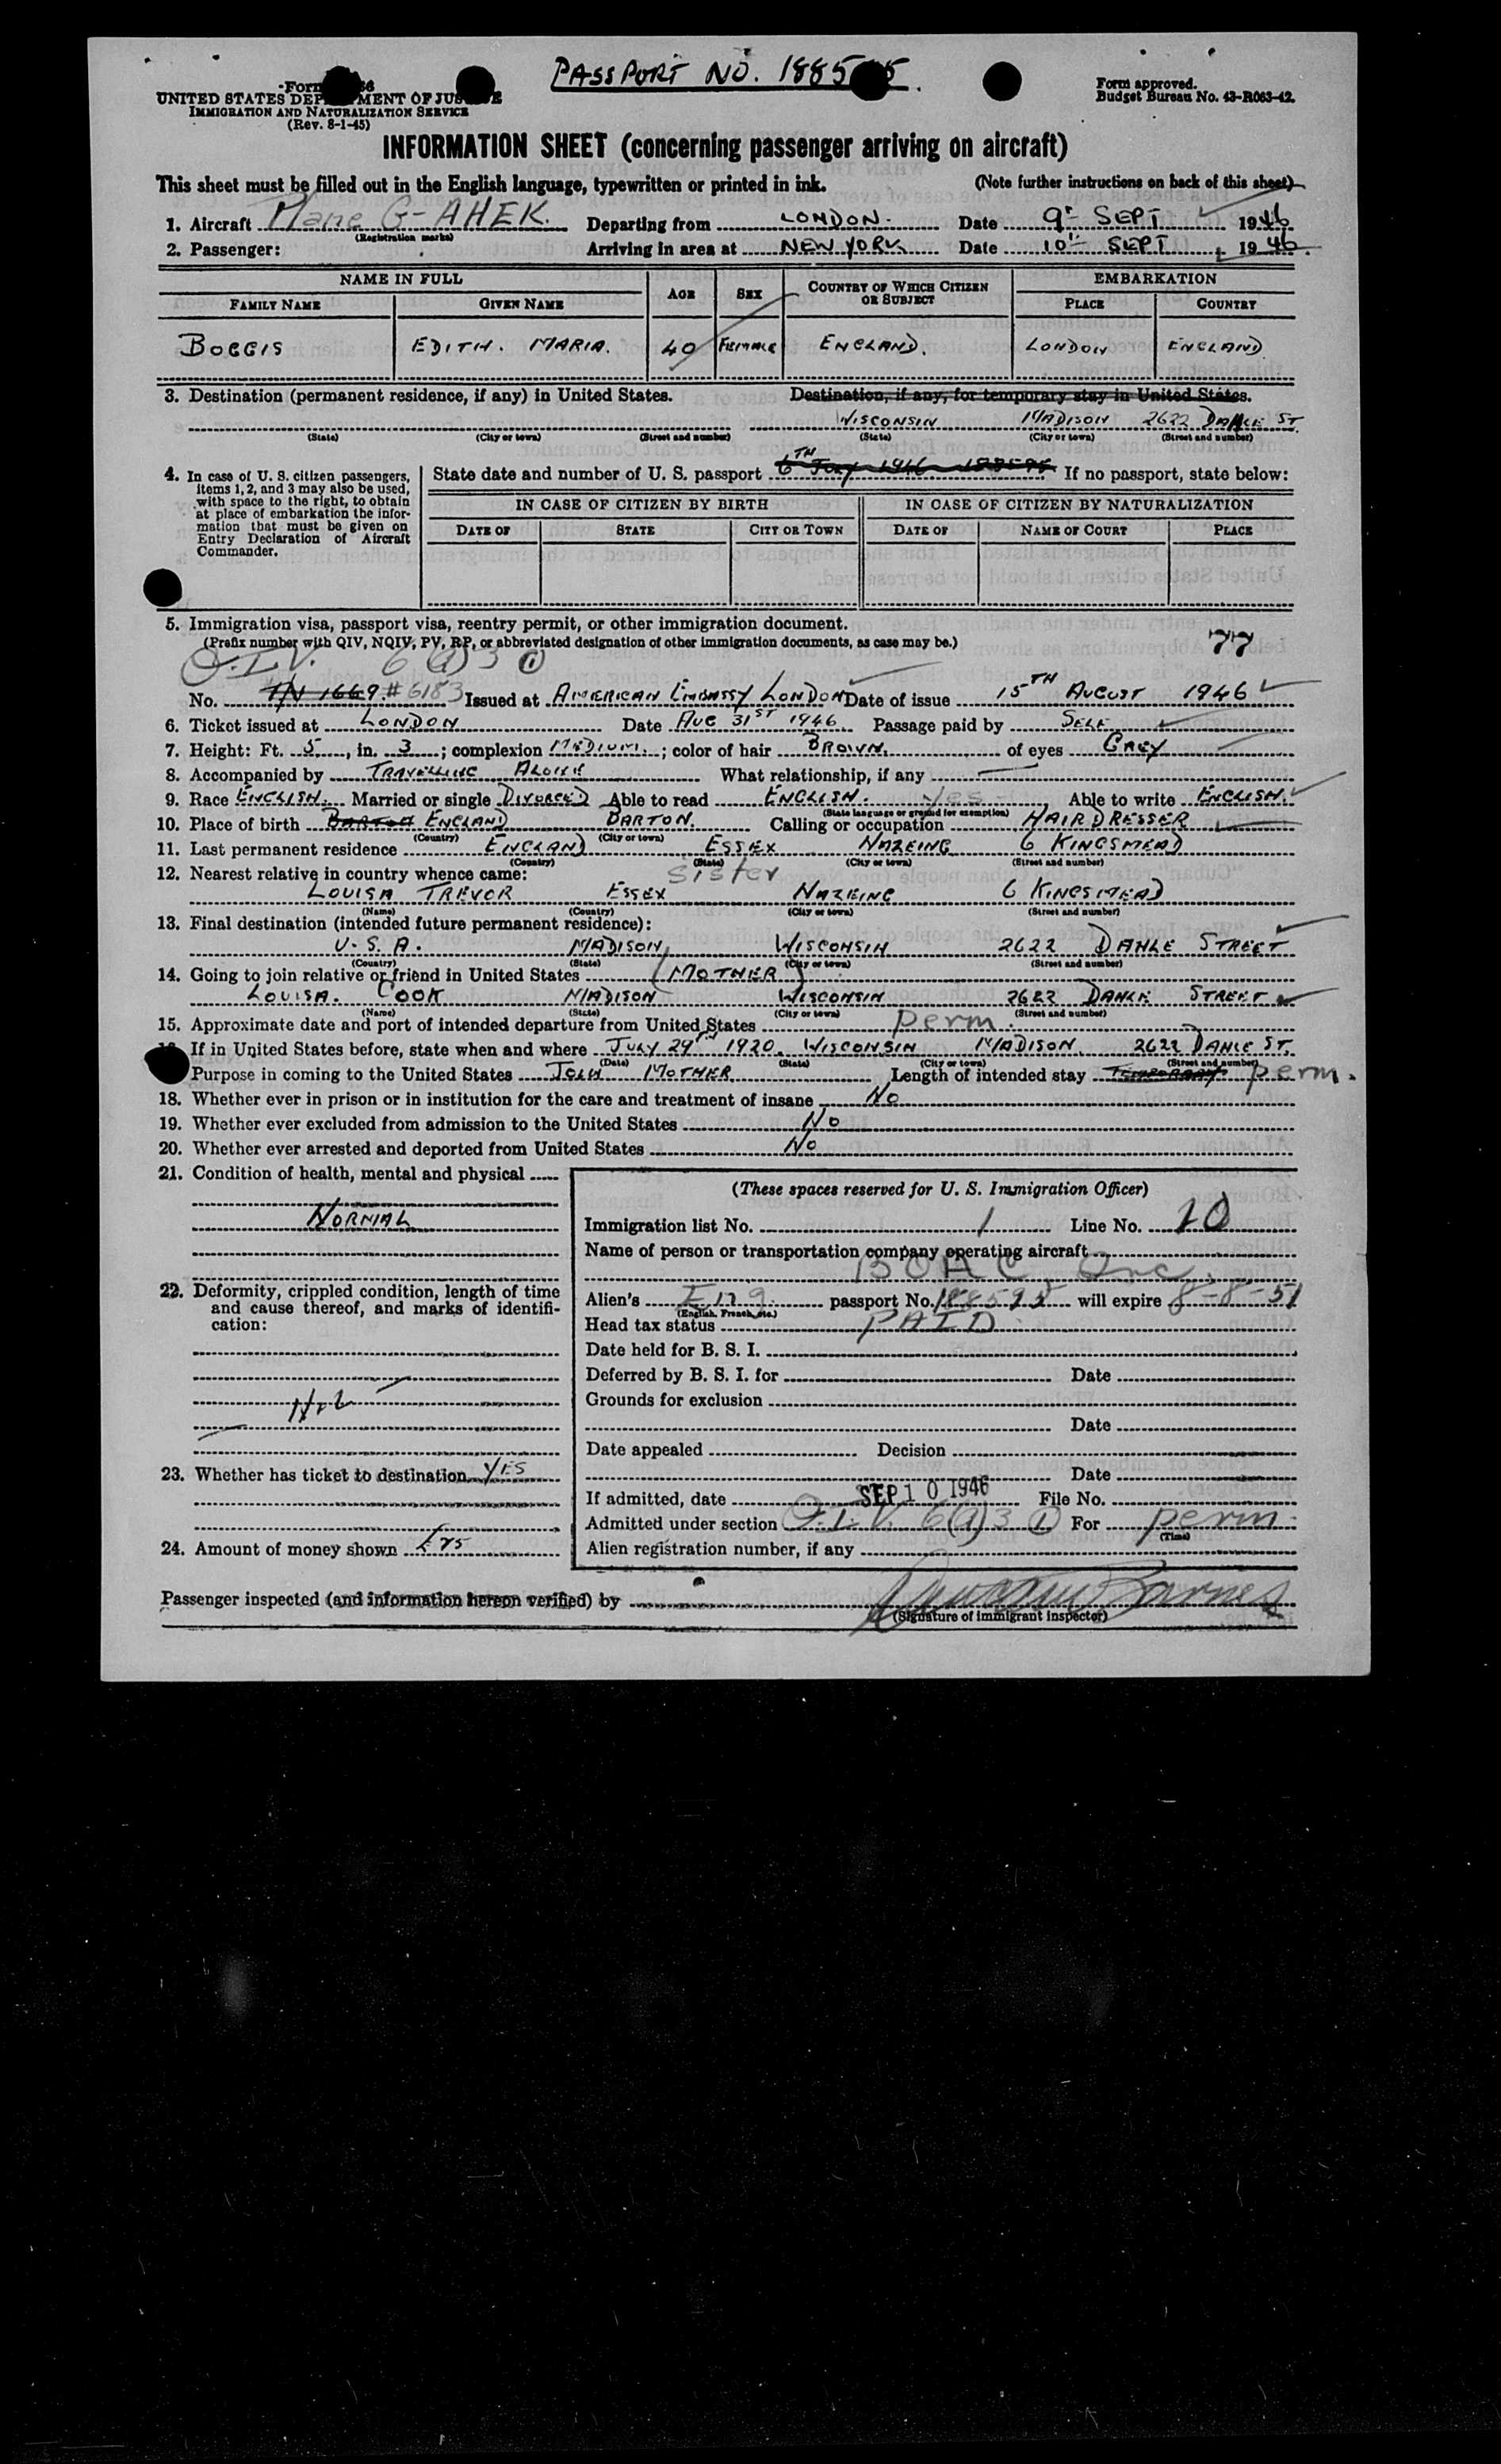 PASSPORT NO. 1885 5.
Form
UNITED STATES DEPARTMENT OF JUSTICE
IMMIGRATION AND NATURALIZATION SERVICE
(Rev. 8-1-45)
Form approved.
Budget Bureau No. 43-R063-42.
INFORMATION SHEET (concerning passenger arriving on aircraft)
This sheet must be filled out in the English language, typewritten or printed in ink. (Note further instructions on back of this sheet)
1. Aircraft Plane G-AHEK. Departing from LONDON. Date 9TH SEPT 1946
(Registration marks)
2. Passenger: Arriving in area at NEW YORK Date 10TH SEPT 1946.
NAME IN FULL AGE SEX COUNTRY OF WHICH CITIZEN OR SUBJECT EMBARKATION
FAMILY NAME GIVEN NAME PLACE COUNTRY
BOGGIS EDITH. MARIA. 40 FEMALE ENGLAND. LONDON ENGLAND
3. Destination (permanent residence, if any) in United States. Destination, if any, for temporary stay in United States.
WISCONSIN MADISON 2622 DAHLE ST.
(State) (City or town) (Street and number) (State) (City or town) (Street and number)
4. In case of U. S. citizen passengers, items 1, 2, and 3 may also be used, with space to the right, to obtain at place of embarkation the information that must be given on Entry Declaration of Aircraft Commander.
State date and number of U. S. passport 6TH July 1946 If no passport, state below:
IN CASE OF CITIZEN BY BIRTH IN CASE OF CITIZEN BY NATURALIZATION
DATE OF STATE CITY OR TOWN DATE OF NAME OF COURT PLACE
5. Immigration visa, passport visa, reentry permit, or other immigration document.
(Prefix number with QIV, NQIV, PV, RP, or abbreviated designation of other immigration documents, as case may be.) 77
Q.I.V. 6(a)3 ①
No. T/N 1669. #6183 Issued at AMERICAN EMBASSY LONDON Date of issue 15TH AUGUST 1946
6. Ticket issued at LONDON Date AUG 31ST 1946 Passage paid by SELF
7. Height: Ft. 5, in. 3; complexion MEDIUM.; color of hair BROWN. of eyes GREY
8. Accompanied by TRAVELLING ALONE What relationship, if any
9. Race ENGLISH. Married or single DIVORCED Able to read ENGLISH. Yes Able to write ENGLISH.
(State language or ground for exemption)
10. Place of birth BARTON ENGLAND BARTON. Calling or occupation HAIRDRESSER
(Country) (City or town)
11. Last permanent residence ENGLAND ESSEX NAZEING 6 KINGSMEAD
(Country) (State) (City or town) (Street and number)
12. Nearest relative in country whence came: Sister
LOUISA TREVOR ESSEX NAZEING 6 KINGSMEAD
(Name) (Country) (City or town) (Street and number)
13. Final destination (intended future permanent residence):
U.S.A. MADISON WISCONSIN 2622 DAHLE STREET
(Country) (State) (City or town) (Street and number)
14. Going to join relative or friend in United States (MOTHER)
LOUISA. COOK MADISON WISCONSIN 2622 DAHLE STREET
(Name) (State) (City or town) (Street and number)
15. Approximate date and port of intended departure from United States perm.
If in United States before, state when and where JULY 29TH 1920. WISCONSIN MADISON. 2622 DAHLE ST.
(Date) (State) (City or town) (Street and number)
Purpose in coming to the United States JOIN MOTHER Length of intended stay TEMPORARY perm.
18. Whether ever in prison or in institution for the care and treatment of insane NO
19. Whether ever excluded from admission to the United States NO
20. Whether ever arrested and deported from United States NO
21. Condition of health, mental and physical
NORMAL
22. Deformity, crippled condition, length of time and cause thereof, and marks of identification:
23. Whether has ticket to destination YES
24. Amount of money shown
(These spaces reserved for U. S. Immigration Officer)
Immigration list No. 1 Line No. 10
Name of person or transportation company operating aircraft
BOAC Inc.
Alien's Eng. passport No. will expire 8-8-51
(English, French, etc.)
Head tax status PAID
Date held for B. S. I.
Deferred by B. S. I. for Date
Grounds for exclusion
Date
Date appealed Decision
Date
If admitted, date SEP 10 1946 File No.
Admitted under section Q.I.V. 6(a)3 ① For perm.
(Time)
Alien registration number, if any
Passenger inspected (and information hereon verified) by Barnes
(Signature of immigrant inspector)